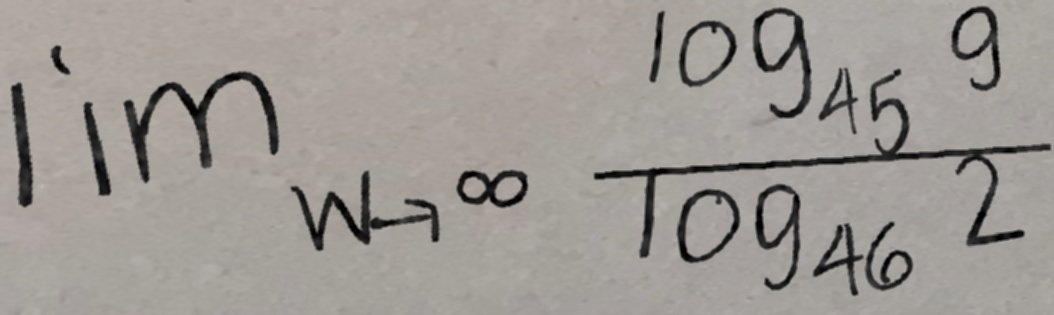 \lim_{w \to \infty} \frac{\log_{45} 9}{\log_{46} 2}